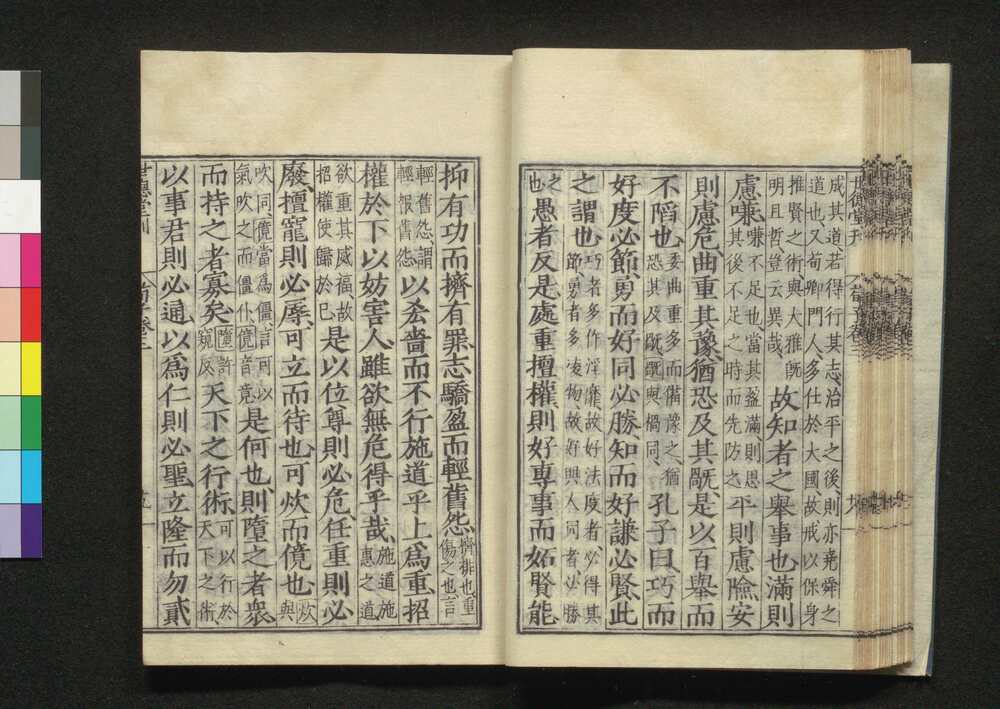 成其道若得行其志治平之後則亦堯舜之
道也又荀卿門人多仕於大國故戒以保身
推賢之術與大雅旣
明且哲豈云異哉
故知者之舉事也滿則
慮嗛
嗛不足也當其盈滿則思
其後不足之時而先防之
平則慮險安
則慮危曲重其豫猶恐及其旤是以百舉而
不陷也
委曲重多而備豫之猶
恐其及旤旤與禍同
孔子曰巧而
好度必節勇而好同必勝知而好謙必賢此
之謂也
巧者多作淫靡故好法度者必得其
節勇者多陵物故好與人同者必勝
之
也
愚者反是處重擅權則好專事而妬賢能
抑有功而擠有罪志驕盈而輕舊怨
擠排也重
傷之也言
輕舊怨謂
輕報舊怨
以𠫤嗇而不行施道乎上爲重招
權於下以妨害人雖欲無危得乎哉
施道施
惠之道
欲重其威福故
招權使歸於己
是以位尊則必危任重則必
廢擅寵則必辱可立而待也可炊而傹也
炊
與
吹同傹當爲僵言可以
氣吹之而僵仆傹音竟
是何也則墮之者衆
而持之者寡矣
墮許
窺反
天下之行術
可以行於
天下之術
以事君則必通以爲仁則必聖立隆而勿貳